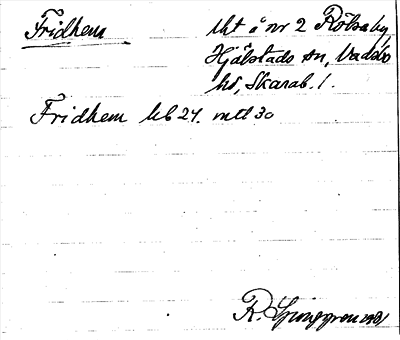 Fridhem lht å nr 2 Rölsaby
Hjälstads sn, Vadsbo
hd, Skarab. l.
Fridhem kb 24. mtl 30
R. Ljunggren 1931